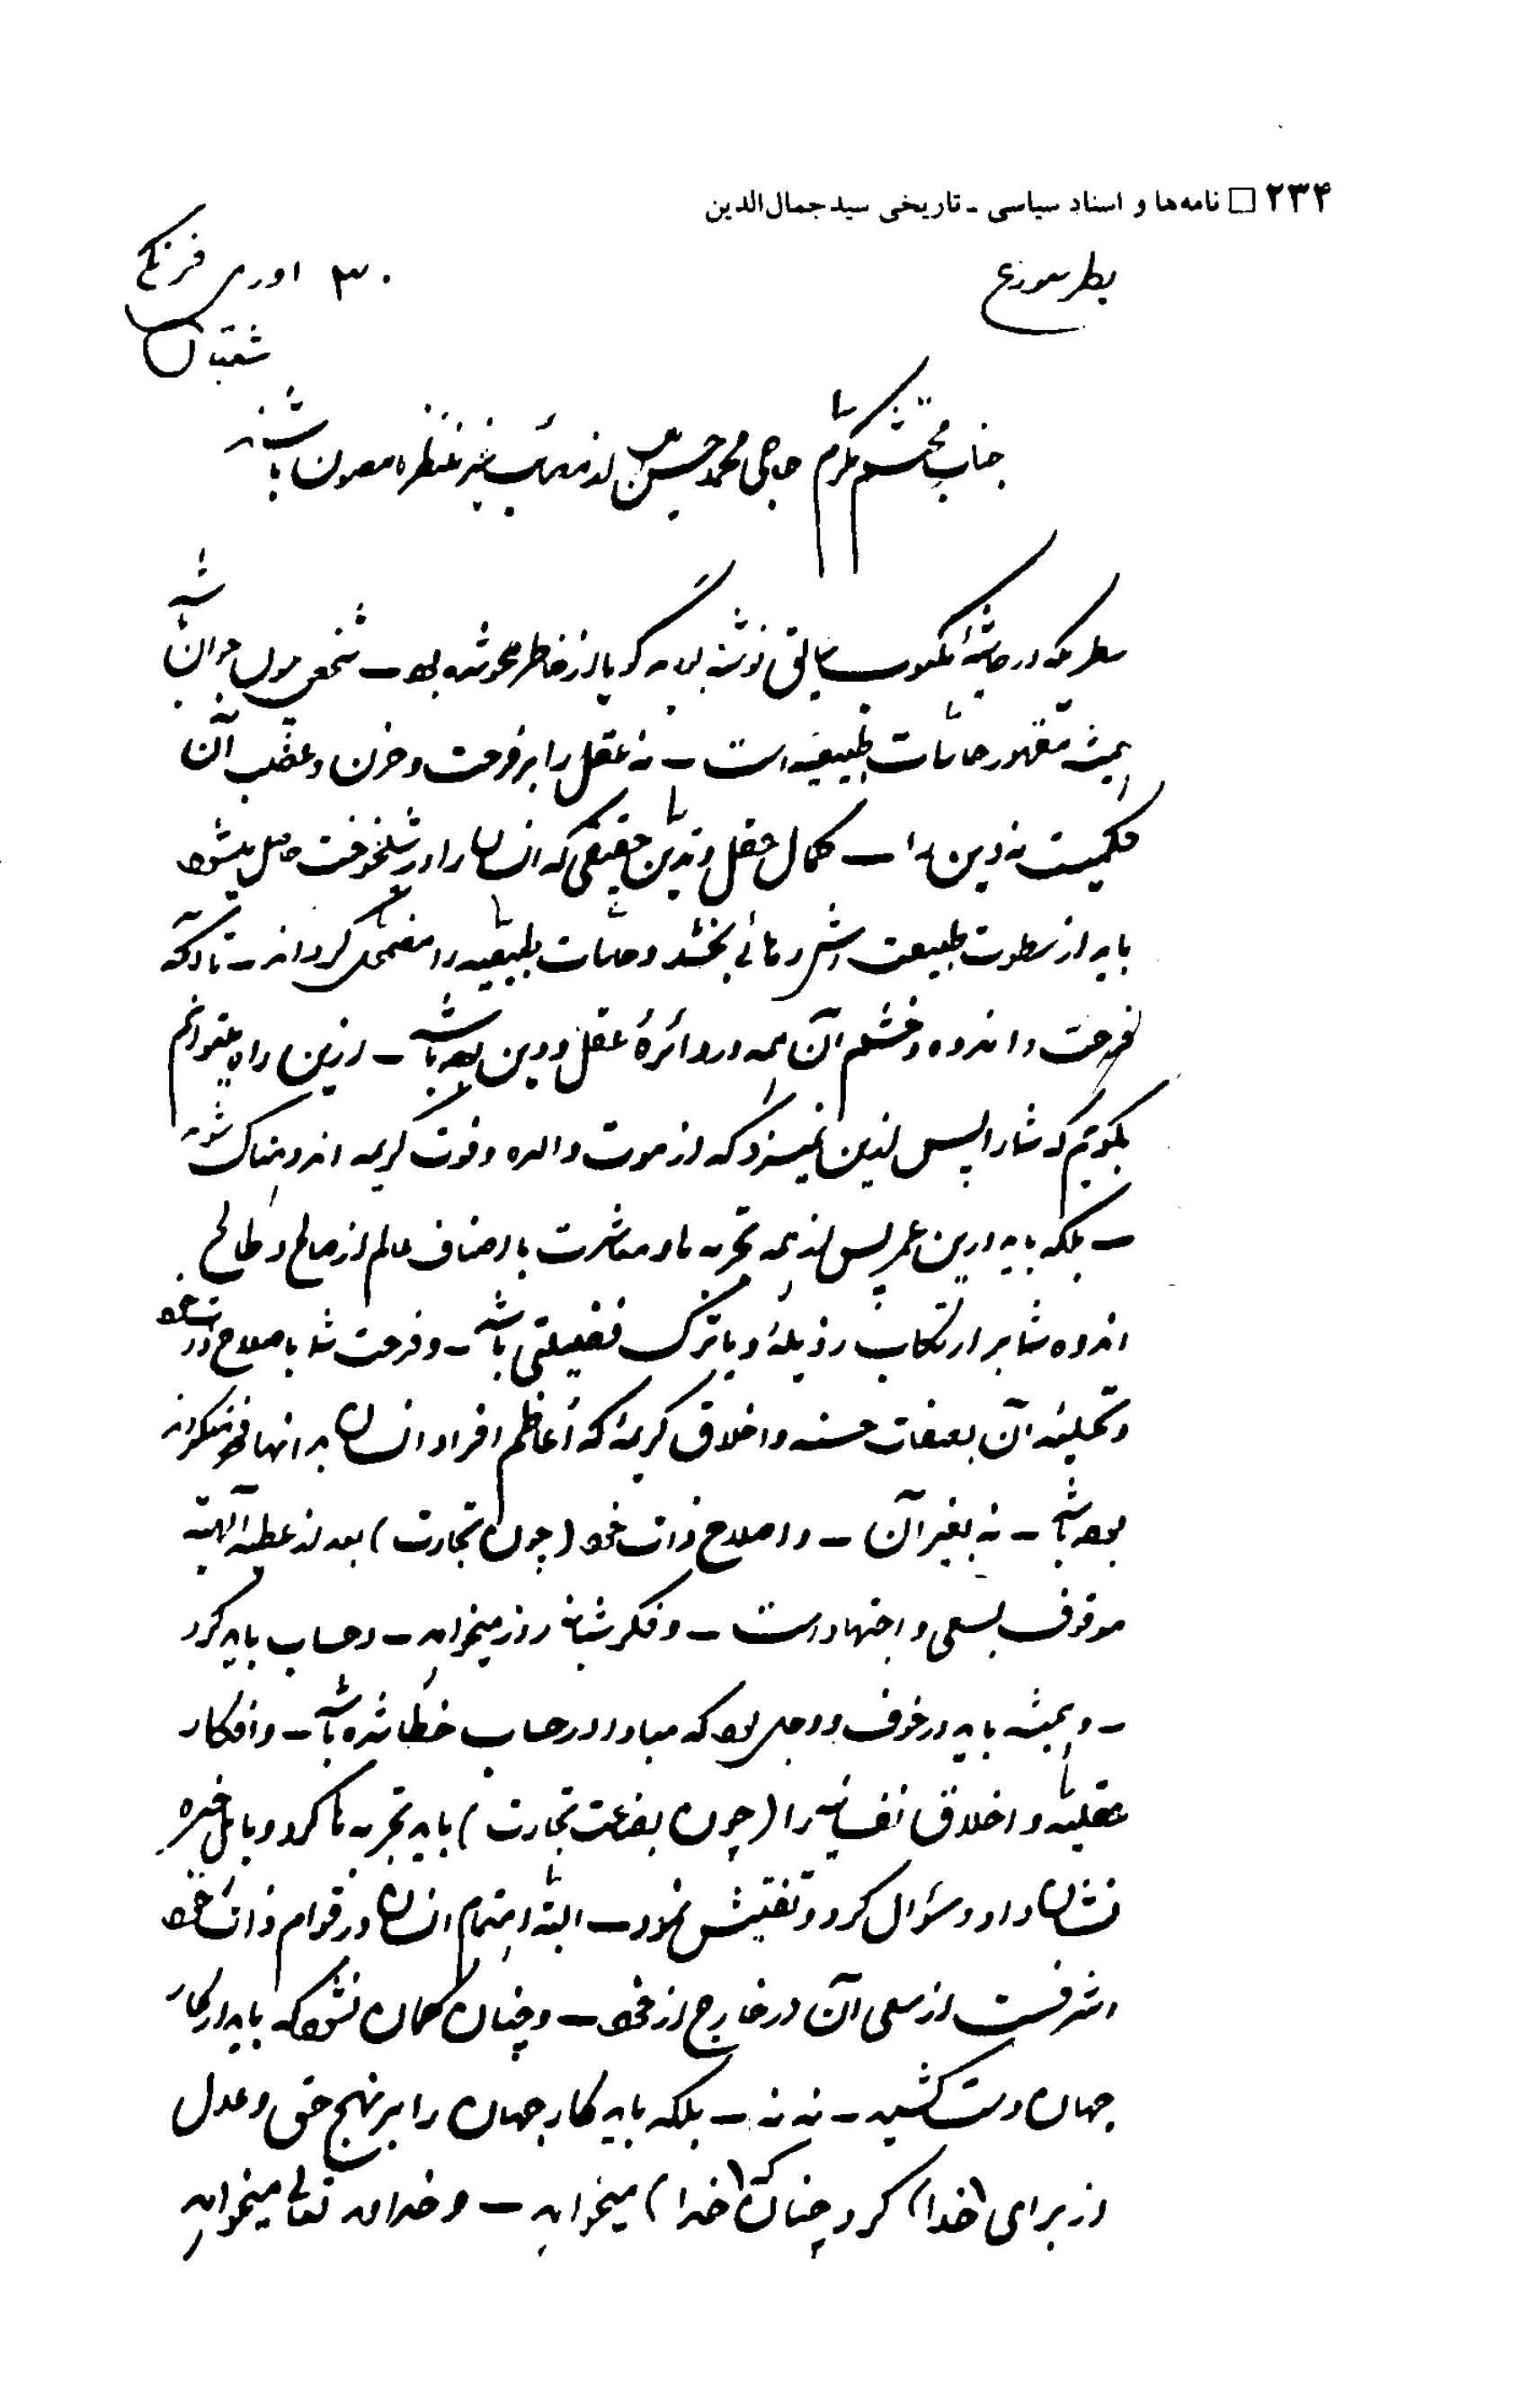 ۲۳۴ □ نامه‌ها و اسناد سیاسی ـ تاریخی سید جمال‌الدین
بطرسبورغ
۳۰ اوریل فرنگی
شعبان
جناب محتشم مکرم حاجی محمد حسن از مصائب غیر منتظره مصون باشند
سطریکه در حاشیهٔ مکتوب سیاتی نوشته بودید گویا از خاطر محو شده بود ـ شخص چون جوان باشد
همیشه مقهور حاسیات طبیعیه است ـ نه عقل را بر فرحت و حزن و غضب آن
حکمیست نه دین را ـ کمال عقل و تدین حقیقی که انسان را در شیخوخت حاصل میشود
باید از سطوت طبیعت اش رهائی بخشد و حاسیات طبیعیه را مضمحل گرداند ـ تا آنکه
فرحت و اندوه و خشم آن همه در دائرهٔ عقل و دین بوده باشد ـ ازین راه میتوانم
بگویم که شما را پس ازین نمیسزد که از موت والده و فوت کریمه اندوهناک شوید
ـ بلکه باید درین عمر پس از همه تجربه ها و معاشرت با اصناف عالم از صالح و طالح
اندوه شما بر ارتکاب رذیلهٔ و یا ترک فضیلتی باشد ـ و فرحت شما باصلاح ذات خود
و تحلیهٔ آن بصفات حسنه و اخلاق کریمهٔ که اعاظم افراد انسان به آنها فخر میکردند
بوده باشد ـ نه بغیر آن ـ و اصلاح ذات خود (چون تجارت) بعد از عطیهٔ آلهیه
موقوف بسعی و اجتهاد است ـ و فکر شبانه روز میخواهد ـ و حساب باید کرد
ـ و همیشه باید در خوف و وجل بود که مبادا در حساب خطا شده باشد ـ و افکار
عقلیه و اخلاق نفسانیه را (چون بضاعت تجارت) باید تجربه ها کرد و باهل خبره
نشان داد و سؤال کرد و تفتیش نمود ـ البته اهتمام انسان در قوام ذات خود
اشرفست از سعی آن در خارج از خود ـ و چنان گمان نشود که باید از کار
جهان دست کشید ـ نه نه ـ بلکه باید کار جهان را بر نهج حق و عدل
از برای (خدا) کرد چنانکه (خدا) میخواهد ـ و خداوند تعالی میخواهد